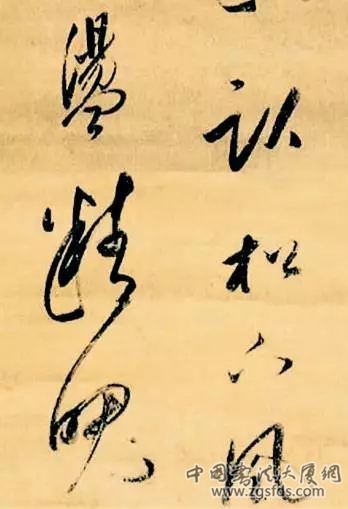 臥松下風
盪精魄
中国書法大厦網
www.zgsfds.com